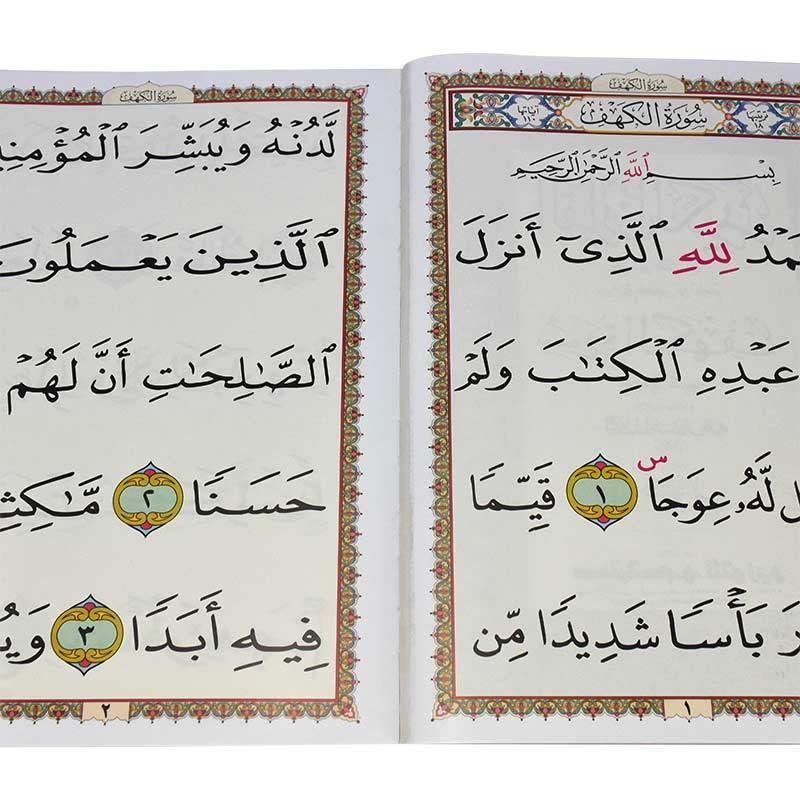 سُورَةُ الكَهْفِ
ترتيبها ١٨ سُورَةُ الكَهْفِ آياتها ١١٠
بِسْمِ ٱللَّهِ ٱلرَّحْمَٰنِ ٱلرَّحِيمِ
لِلَّهِ ٱلَّذِىٓ أَنزَلَ
عَبْدِهِ ٱلْكِتَٰبَ وَلَمْ
لَّهُۥ عِوَجَاۜ ١ قَيِّمًا
بَأْسًا شَدِيدًا مِّن
١
سُورَةُ الكَهْفِ
لَّدُنْهُ وَيُبَشِّرَ ٱلْمُؤْمِنِي
ٱلَّذِينَ يَعْمَلُونَ
ٱلصَّٰلِحَٰتِ أَنَّ لَهُمْ
حَسَنًا ٢ مَّٰكِثِ
فِيهِ أَبَدًا ٣ وَيُ
٢